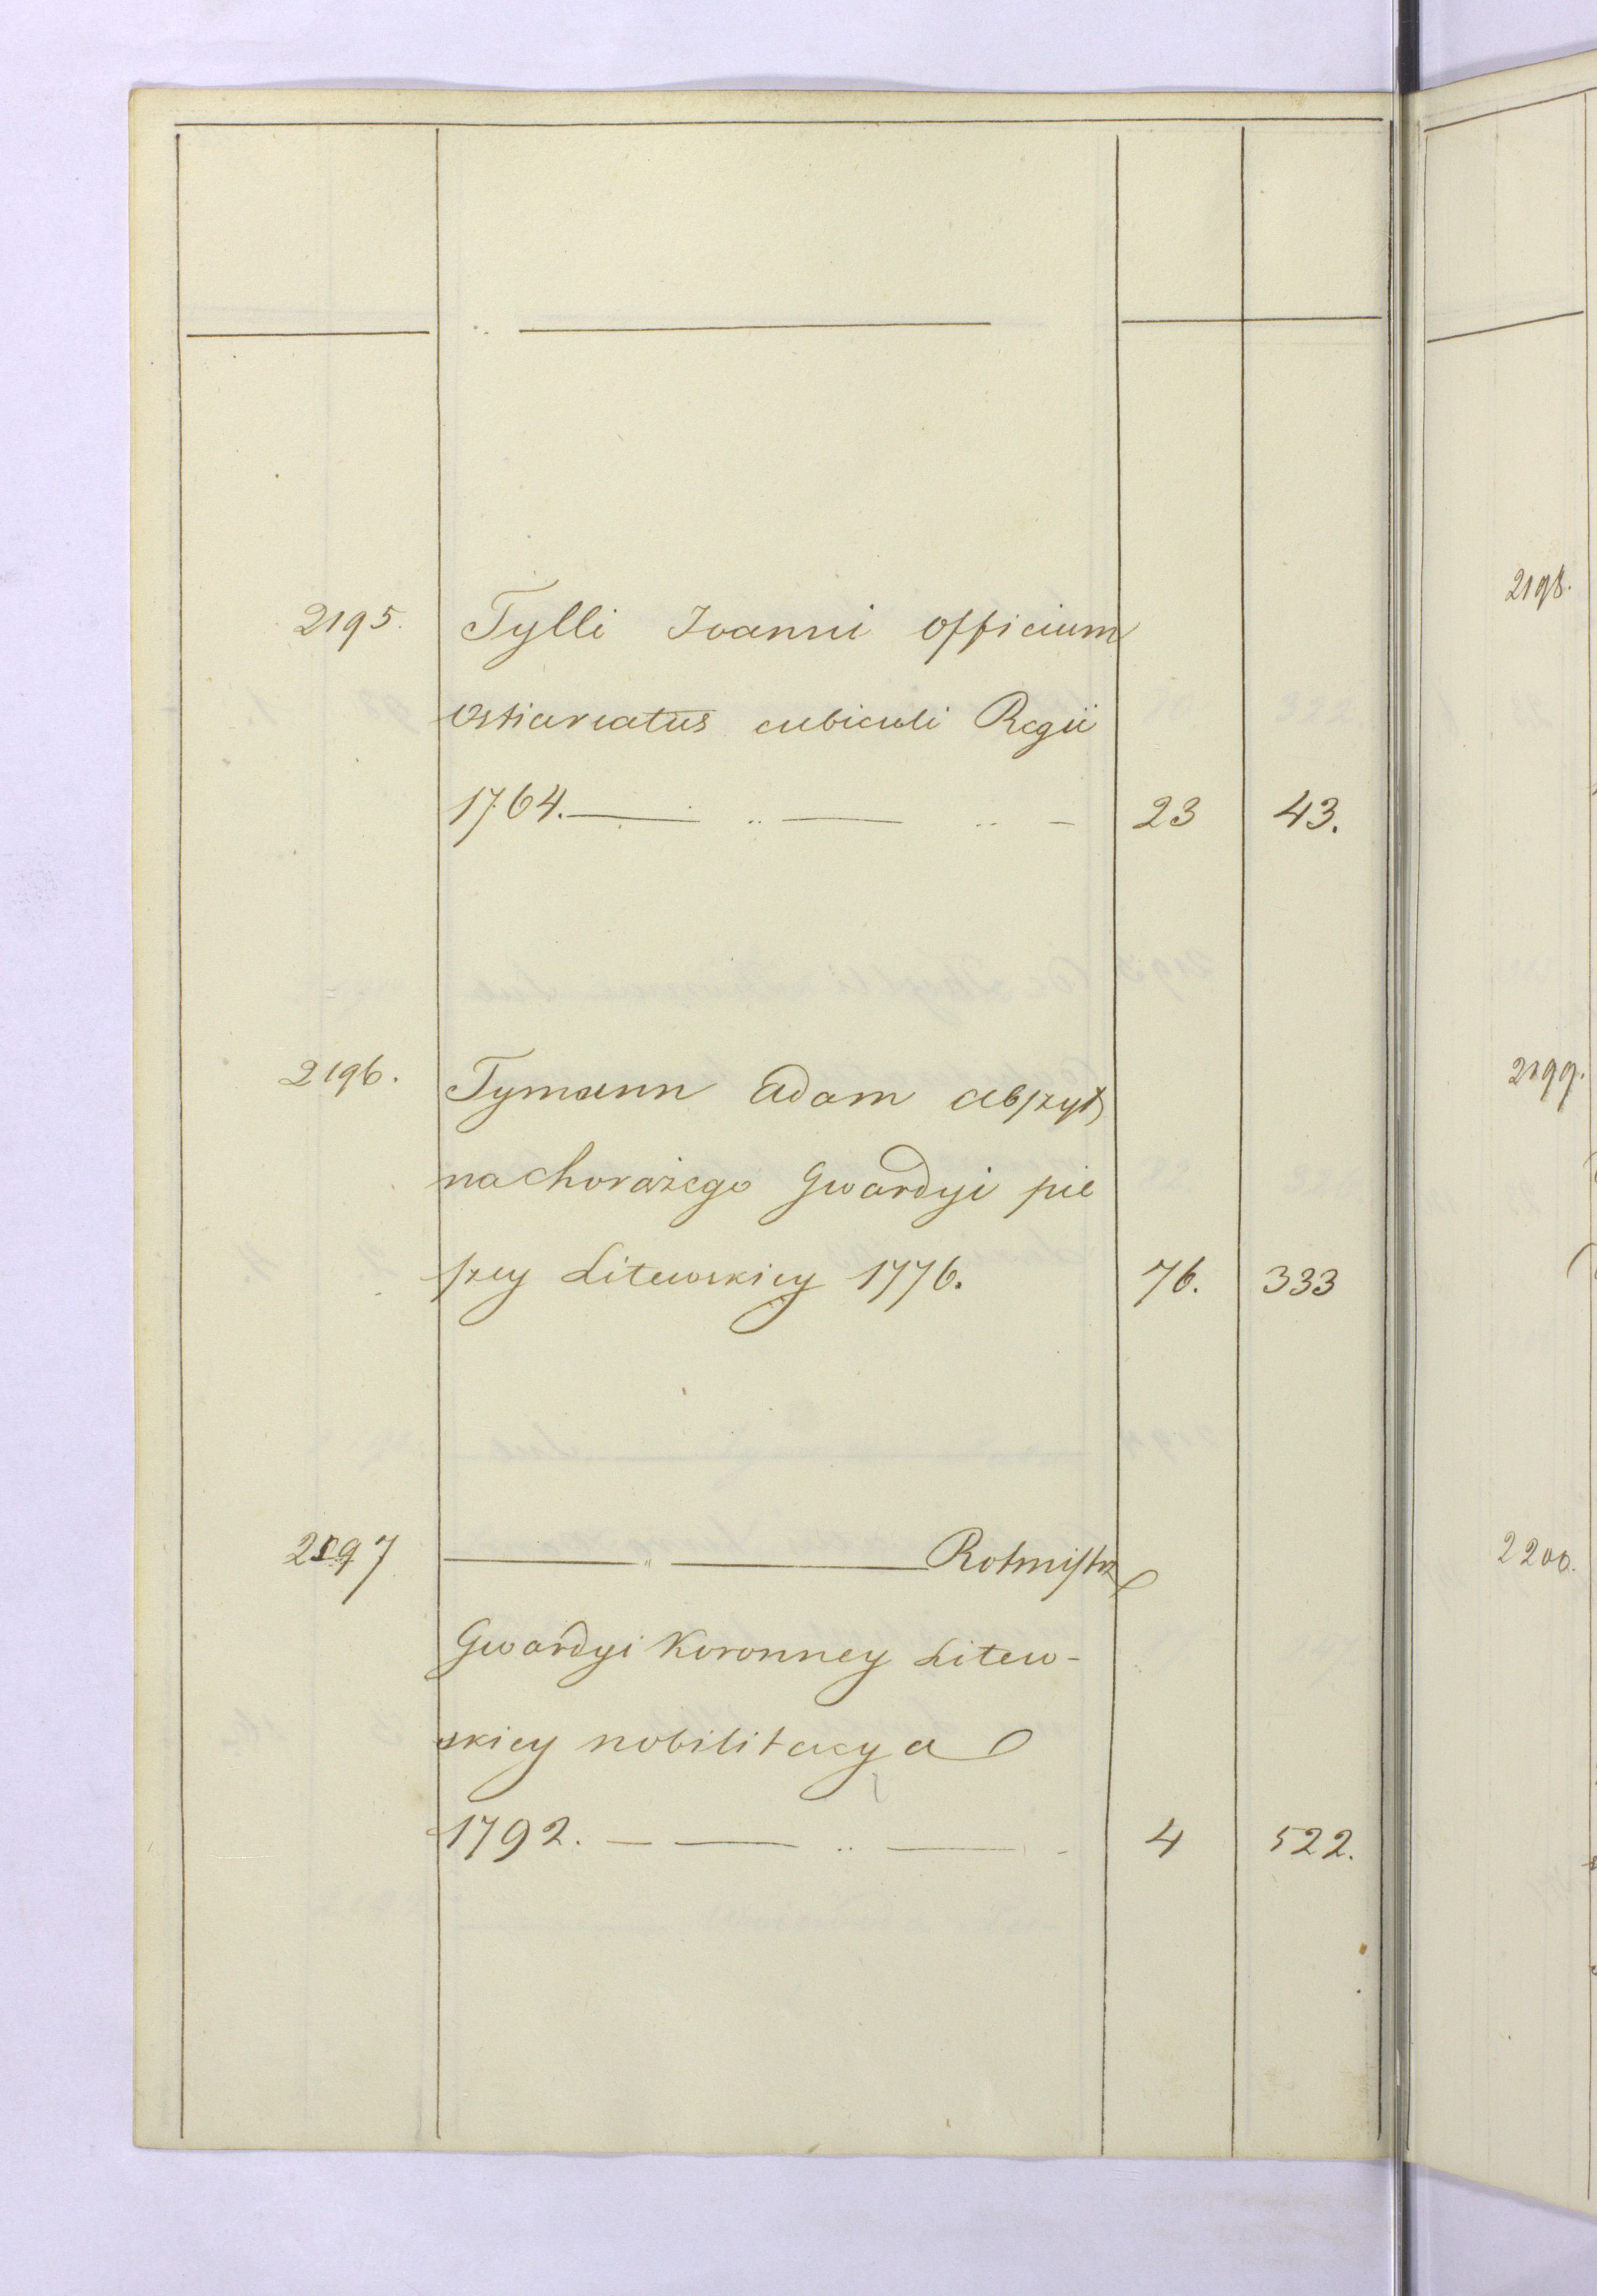 2195. Tylli Joanni officium
Ostiariatus cubiculi Regii
1764. — .. — .. - 23 43.
2196. Tymann Adam abszyt
na chorążego Gwardyi pie
szey Litewskiey 1776. 76. 333
2197 — " — Rotmistrz
Gwardyi Koronney Litew-
skiey nobilitacya
1792. - — .. — - 4 522.
2198.
2199.
2200.